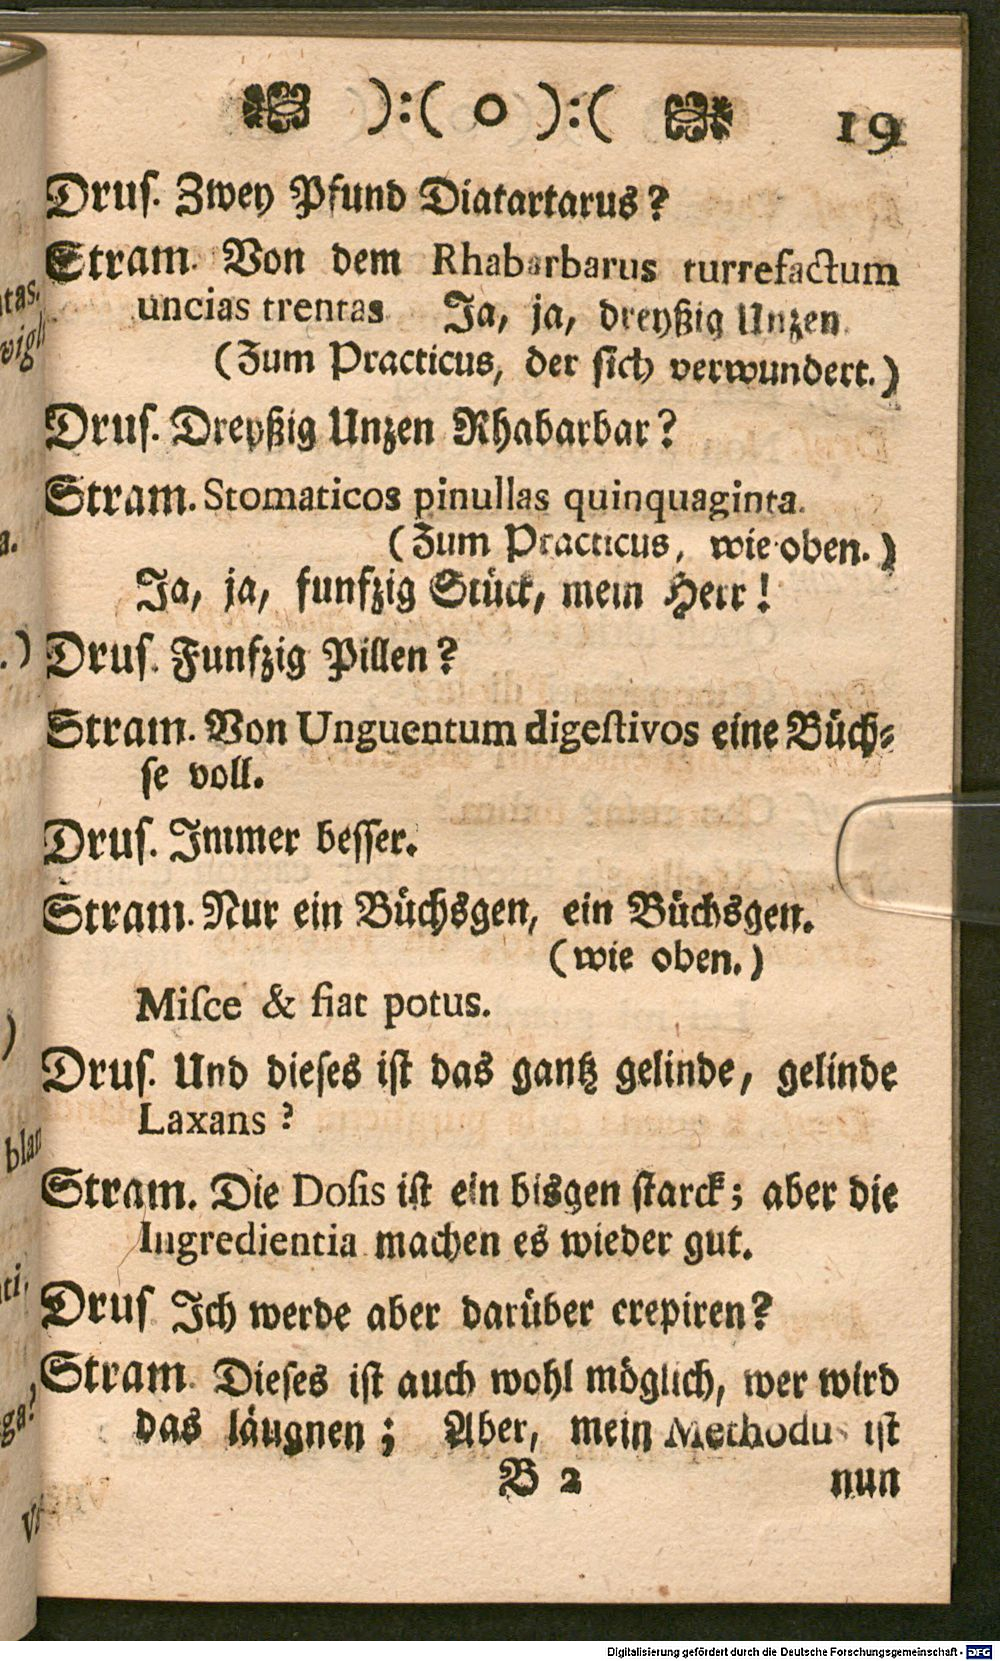 ):( o ):( 19
Druſ. Zwey Pfund Diatartarus?
Stram. Von dem Rhabarbarus turrefactum
uncias trentas Ja, ja, dreyßig Unzen.
(Zum Practicus, der ſich verwundert.)
Druſ. Dreyßig Unzen Rhabarbar?
Stram. Stomaticos pinullas quinquaginta.
(Zum Practicus, wie oben.)
Ja, ja, funfzig Stück, mein Herr!
Druſ. Funfzig Pillen?
Stram. Von Unguentum digeſtivos eine Büch-
ſe voll.
Druſ. Immer beſſer.
Stram. Nur ein Büchsgen, ein Büchsgen.
(wie oben.)
Miſce & fiat potus.
Druſ. Und dieſes iſt das gantz gelinde, gelinde
Laxans?
Stram. Die Doſis iſt ein bisgen ſtarck; aber die
Ingredientia machen es wieder gut.
Druſ Ich werde aber darüber crepiren?
Stram. Dieſes iſt auch wohl möglich, wer wird
das läugnen; Aber, mein Methodus iſt
B 2 nun
Digitalisierung gefördert durch die Deutsche Forschungsgemeinschaft - DFG